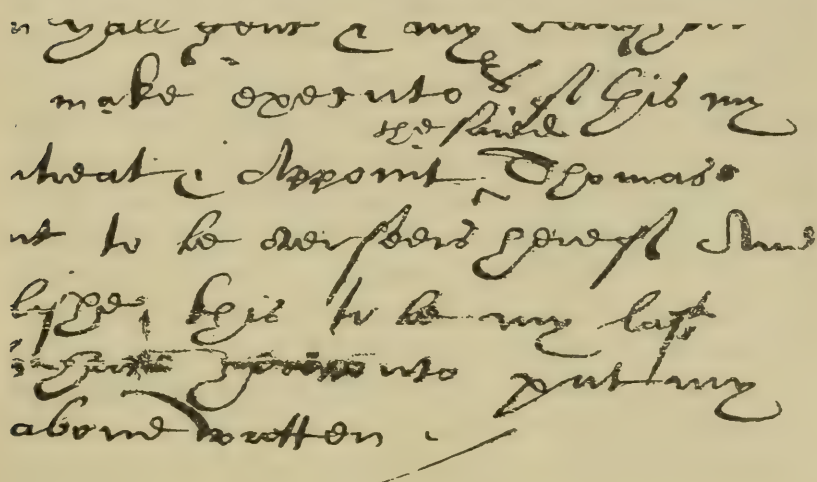 Hall gent & my
make executors of this my
the saied
ntreat & Appoint ‸ Thomas
nt to be overseers hereof And
lishe this to be my last
unto put my
above written .